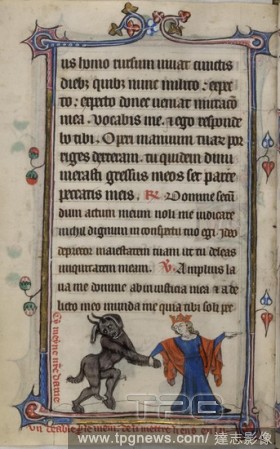 us lymo rursum vivat cunctis
diebz quibz nunc milito: expec
to: expecto donec veniat inmutacio
mea. Vocabis me. & ego responde
bo tibi. Operi manuum tuar por
riges dexteram. tu quidem dinu
merasti gressus meos set parce
peccatis meis. R Domine secun
dum actum meum noli me iudicare
nichil dignum in conspectu tuo egi ideo
deprecor maiestatem tuam ut tu deleas
iniquitatem meam. V Amplius la
va me domine ab iniusticia mea & a de
licto meo munda me quia tibi soli pec
TPG
www.tpgnews.com/ 達志影像